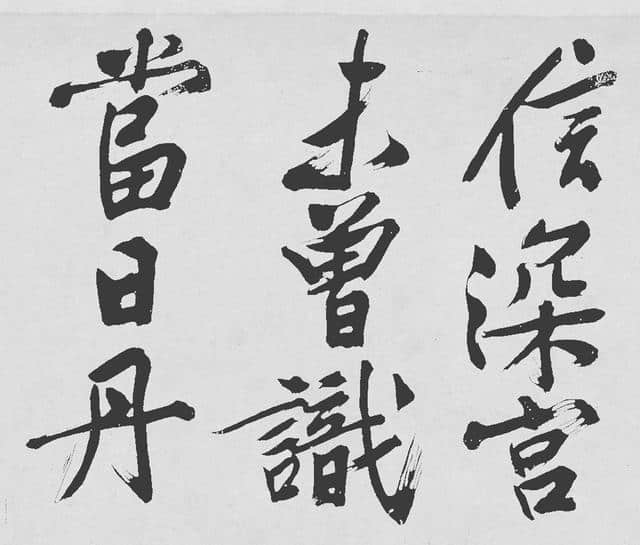 信深宫
未曾識
當日丹